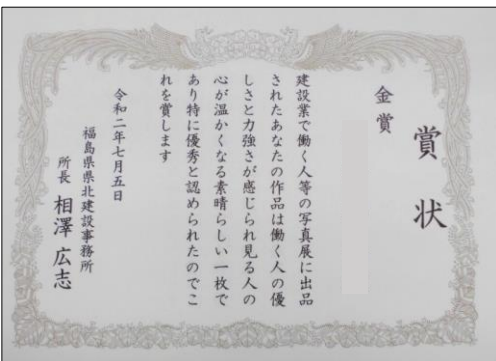 賞状
金賞
建設業で働く人等の写真展に出品
されたあなたの作品は働く人の優
しさと力強さが感じられ見る人の
心が温かくなる素晴らしい一枚で
あり特に優秀と認められたのでこ
れを賞します
令和二年七月五日
福島県県北建設事務所
所長 相澤 広志